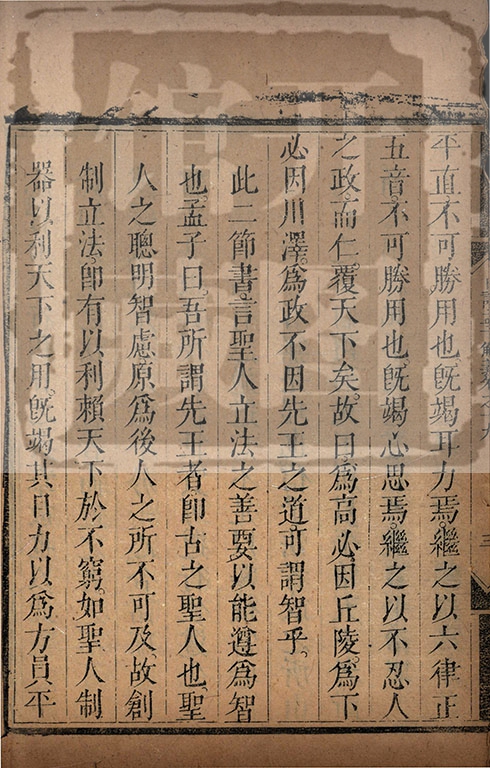 平直不可勝用也。既竭耳力焉。繼之以六律正
五音。不可勝用也。既竭心思焉。繼之以不忍人
之政。而仁覆天下矣。故曰。為高必因丘陵。為下
必因川澤。為政不因先王之道。可謂智乎。
此二節書。言聖人立法之善。要以能遵為智
也。孟子曰。吾所謂先王者。即古之聖人也。聖
人之聰明智慮。原為後人之所不可及。故創
制立法。即有以利賴天下於不窮。如聖人制
器以利天下之用。既竭其目力以為方員平